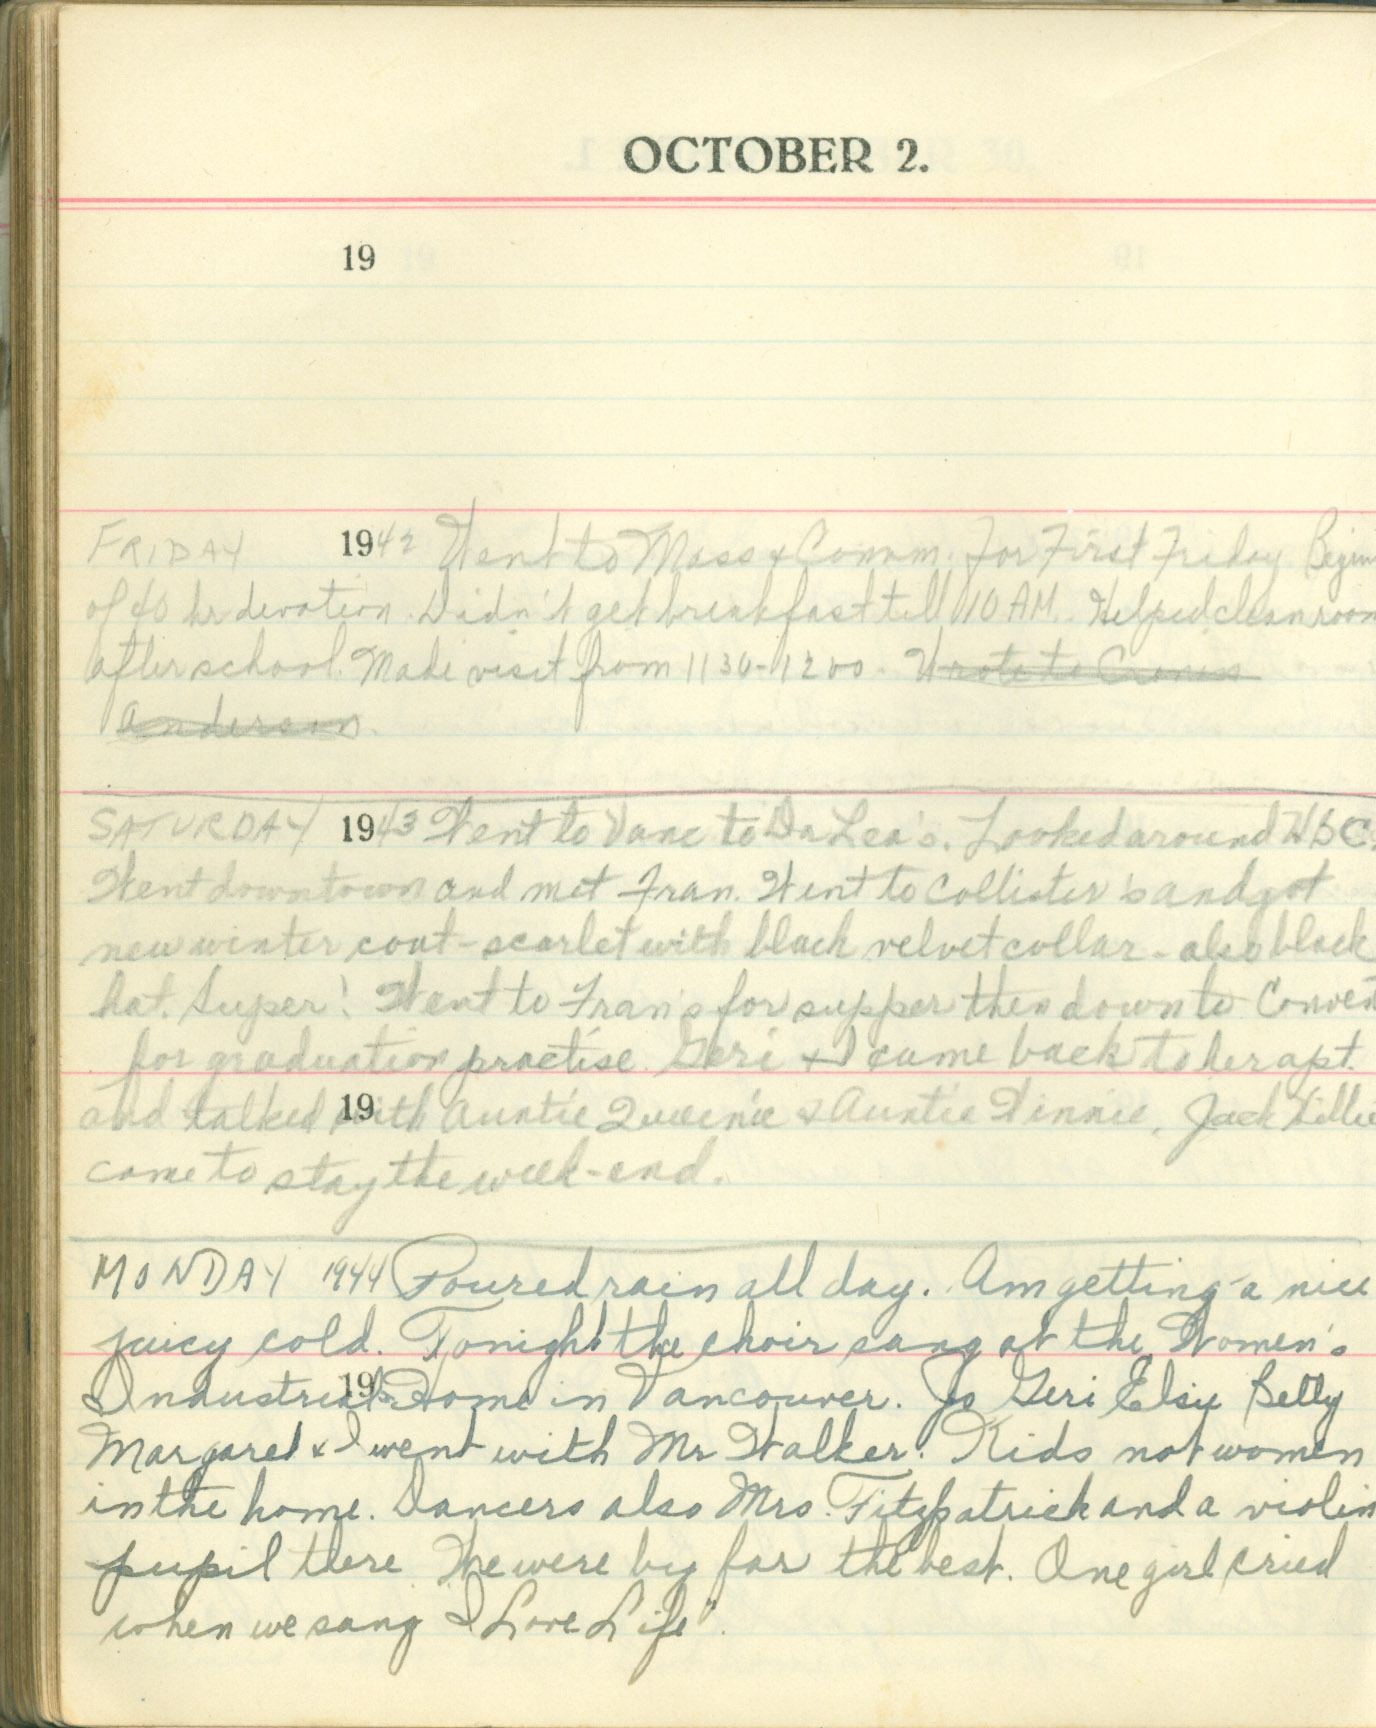 OCTOBER 2.
19
FRIDAY 1942 Went to Mass & Comm. For First Friday Begin
of 40 hr devotion. Didn't get breakfast till 10 AM. Helped clean room
after school. Made visit from 1130-1200. Wrote to
Anderson.
SATURDAY 1943 Went to Vanc to Dr Lea's. Looked around HBC.
Went downtown and met Fran. Went to Collister's and got
new winter coat - scarlet with black velvet collar - also black
hat. Super! Went to Fran's for supper then down to Convent
for graduation practise. Geri & I came back to her apt.
19
and talked with Auntie Queenie & Auntie Winnie, Jack Lillie
came to stay the week-end.
MONDAY 1944 Poured rain all day. Am getting a nice
juicy cold. Tonight the choir sang at the Women's
19
Industrial Home in Vancouver. Jo Geri Elsie Betty
Margaret & I went with Mr Walker. Kids not women
in the home. Dancers also Mrs. Fitzpatrick and a violin
pupil there We were by far the best. One girl cried
when we sang I Love Life".